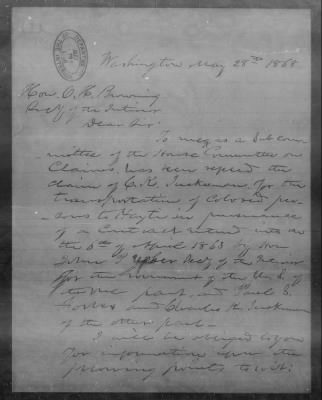 Washington May 28th 1868
Hon. O. H. Browning
Secy of the Interior
Dear Sir:
To me, as a Sub com-
mittee of the House Committee on
Claims, has been refered the
claim of C. K. Tuckerman, for the
transportation of Colored per-
sons to Hayti in pursuance
of a Contract entered into on
the 6th of April 1863 by Hon
John P. Usher Secy of the Interior
for the Government of the U. S. of
the one part, and Paul S.
Forbes and Charles K. Tuckerman
of the other part—
I will be obliged to you
for information upon the
following points to wit: